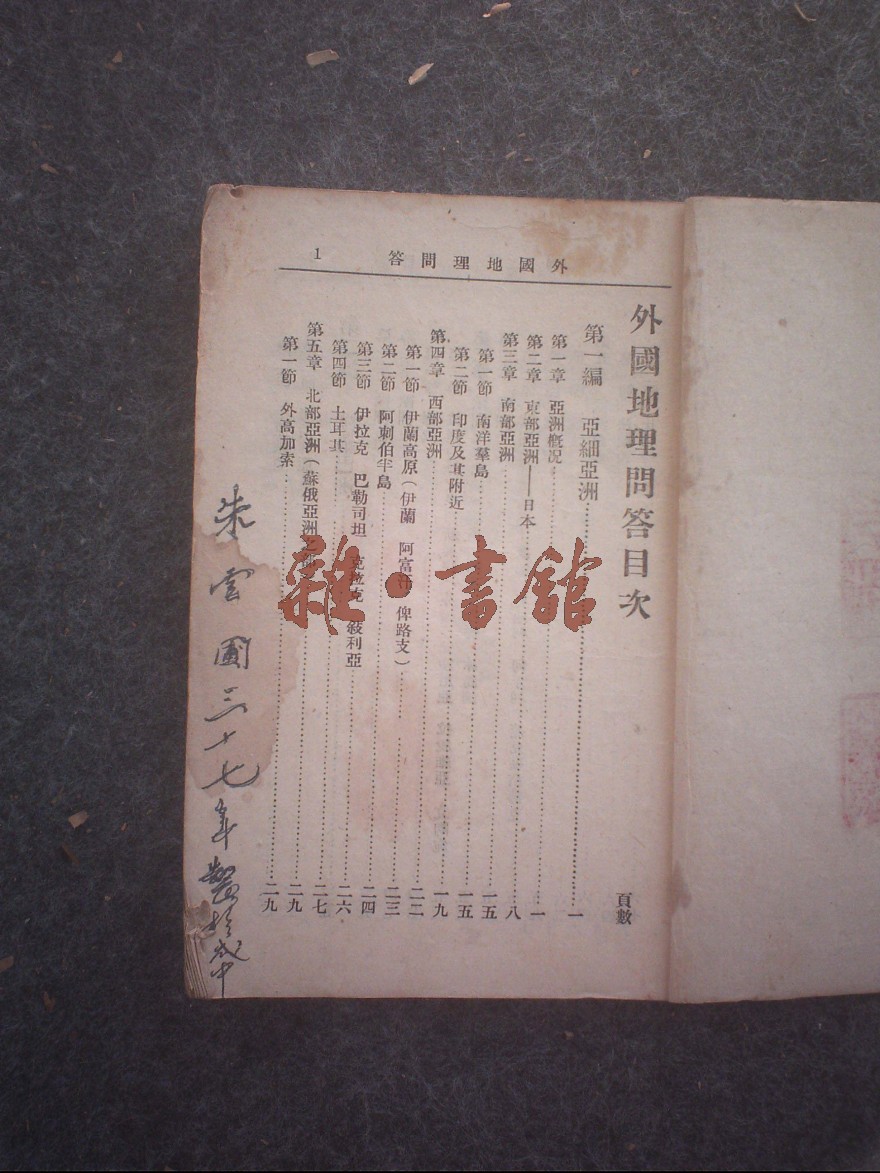 外國地理問答 1
外國地理問答目次
頁數
第一編 亞細亞洲……一
第一章 亞洲槪況……一
第二章 東部亞洲——日本……一
第三章 南部亞洲……八
第一節 南洋羣島……一五
第二節 印度及其附近……一五
第四章 西部亞洲……一九
第一節 伊蘭高原(伊蘭 阿富汗 俾路支)……二二
第二節 阿剌伯半島……二三
第三節 伊拉克 巴勒司坦 敍利亞……二四
第四節 土耳其……二六
第五章 北部亞洲(蘇俄亞洲……二七
第一節 外高加索……二九
二九
朱雲圃三十七年
雜·書館